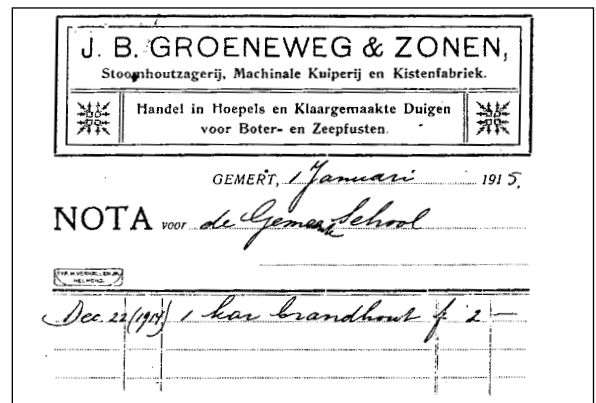 J. B. GROENEWEG & ZONEN,
Stoomhoutzagerij, Machinale Kuiperij en Kistenfabriek.
Handel in Hoepels en Klaargemaakte Duigen
voor Boter- en Zeepfusten.
GEMERT, 1 Januari 1915.
NOTA voor de School
TYP. HELMOND.
Dec. 22 (1914) 1 kar brandhout f 2 —